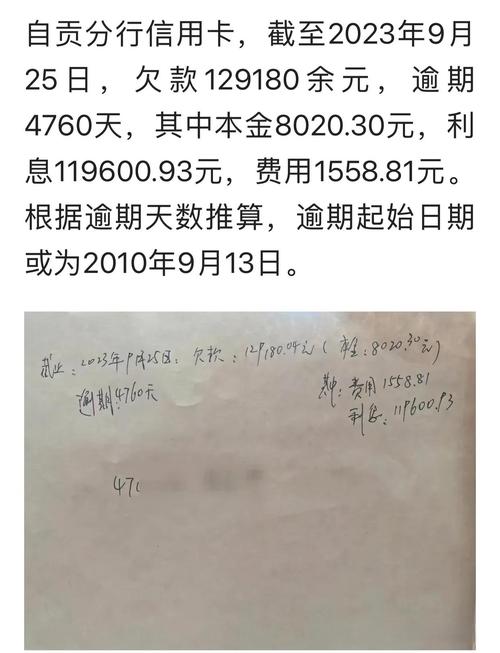 自贡分行信用卡，截至2023年9月
25日，欠款129180余元，逾期
4760天，其中本金8020.30元，利
息119600.93元，费用1558.81元。
根据逾期天数推算，逾期起始日期
或为2010年9月13日。
截止：2023年9月25日：欠款：129180.04元（本金：8020.30元）
逾期：4760天
其中：费用1558.81
利息：119600.93
47